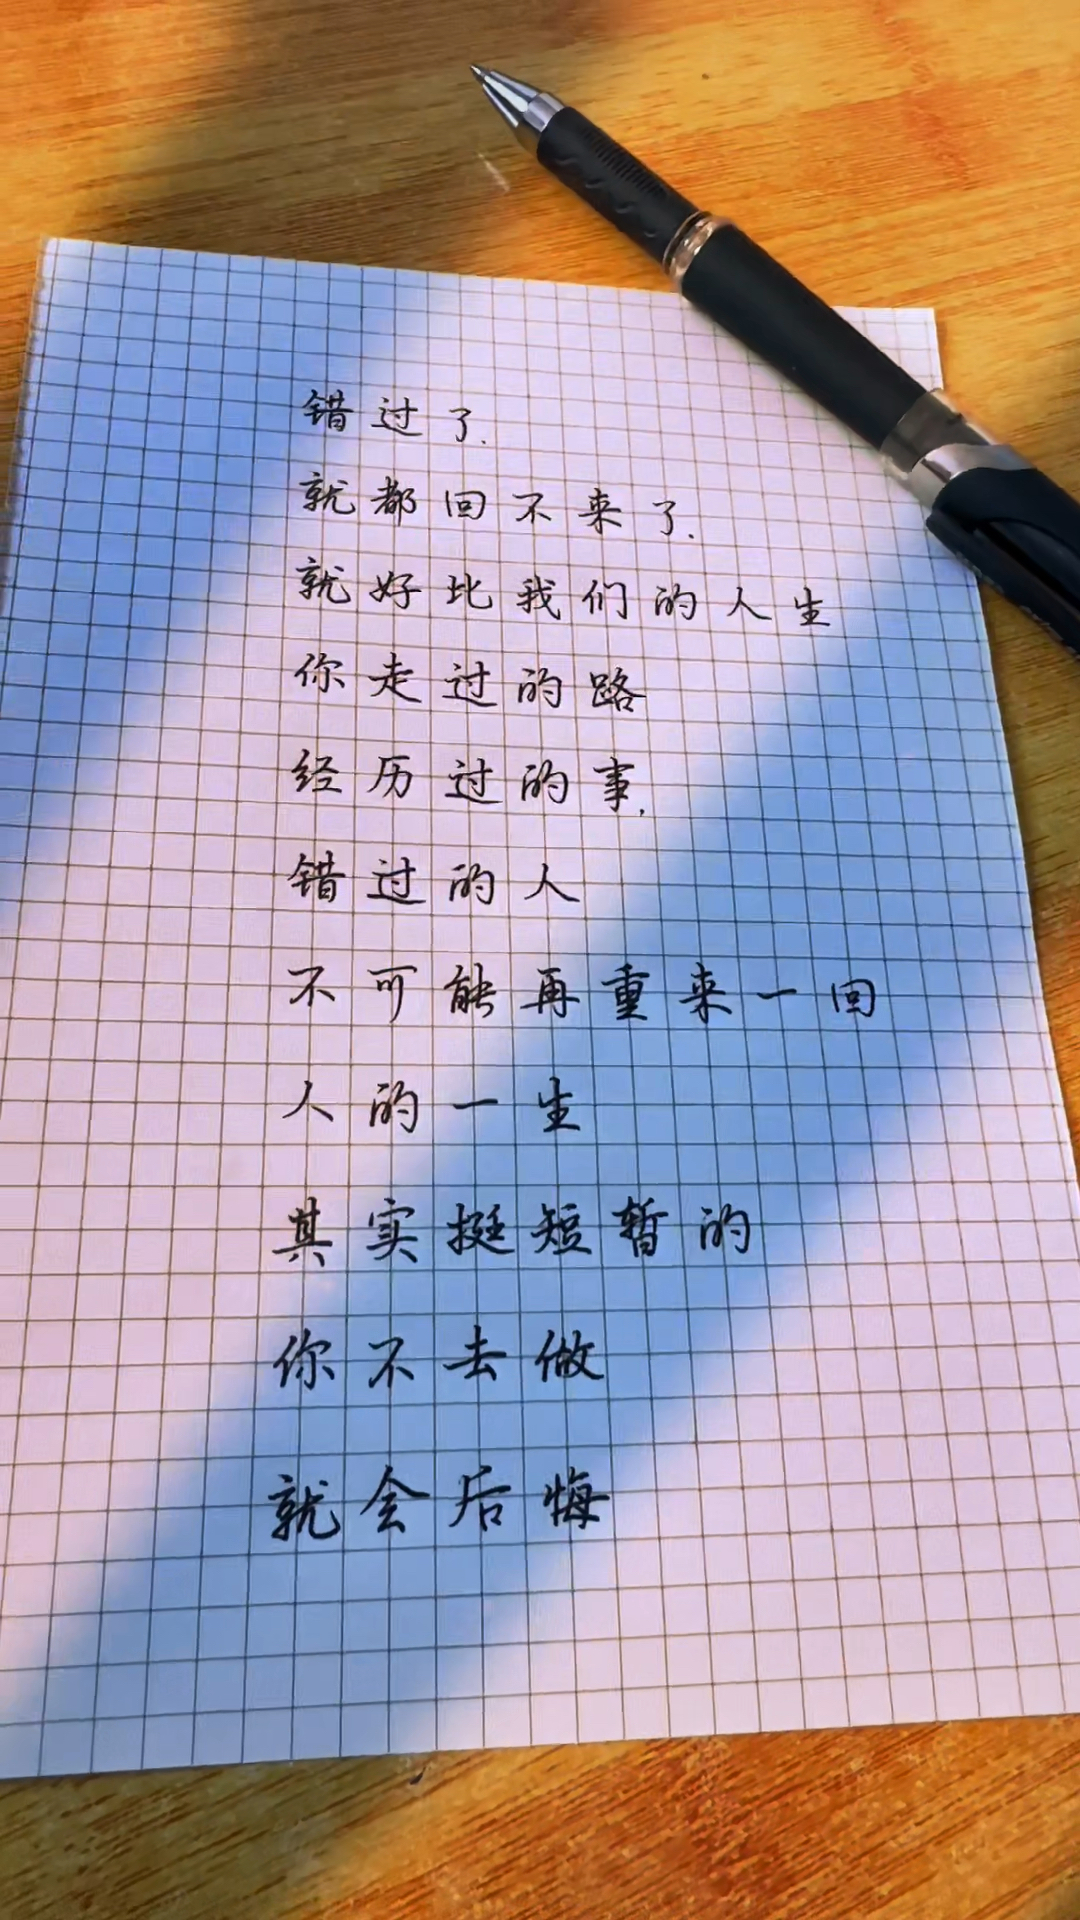 错过了.
就都回不来了.
就好比我们的人生
你走过的路
经历过的事.
错过的人
不可能再重来一回
人的一生
其实挺短暂的
你不去做
就会后悔